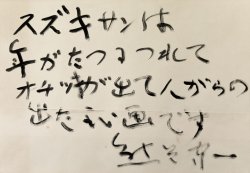 スズキサンは
年がたつるつれて
オチツキが出て人がらの
出たよい画です